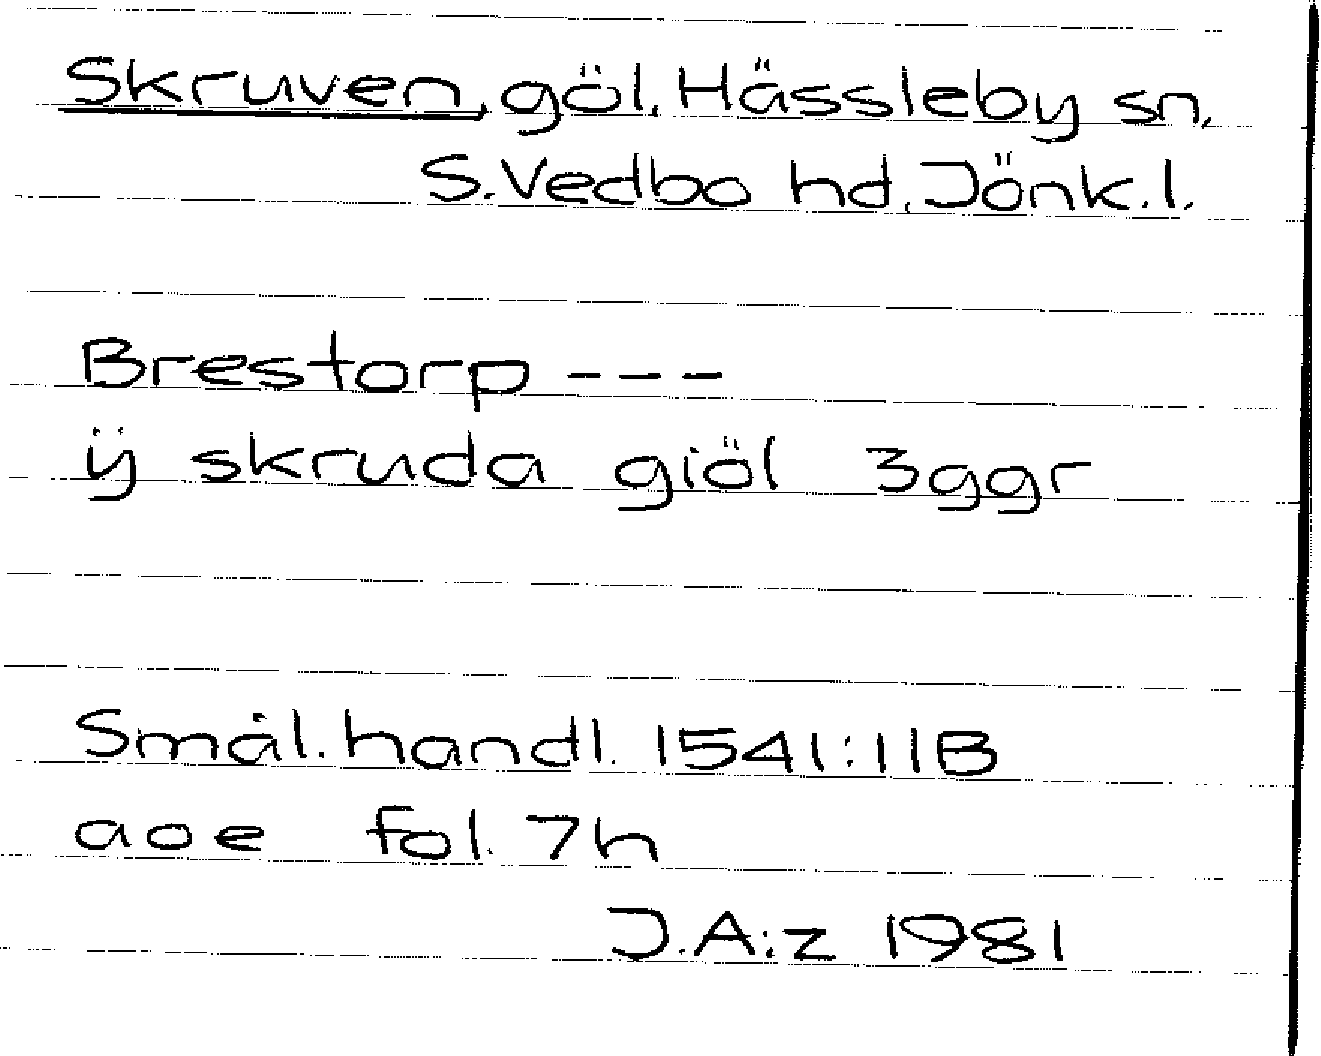 Skruven, göl, Hässleby sn,
S. Vedbo hd. Jönk. l.
Brestorp ---
ÿ skruda giöl 3ggr
Smål. handl. 1541:11B
aoe fol. 7h
J.A:z 1981